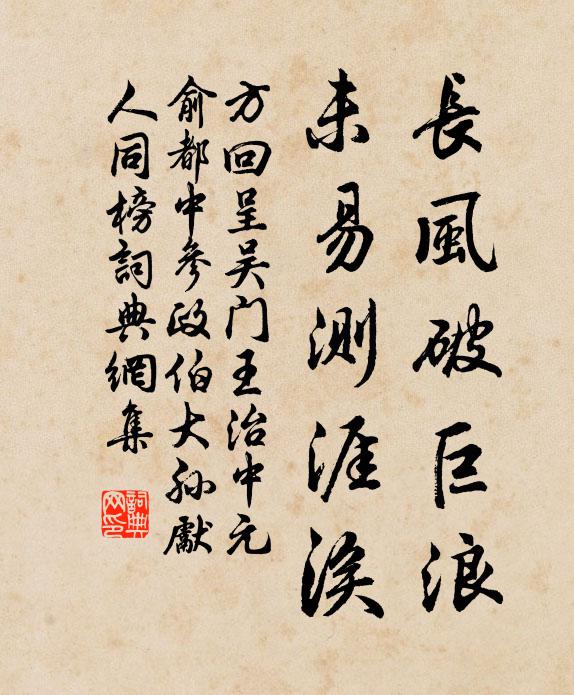 長風破巨浪
未易測涯涘
方回呈吴门王治中元
俞都中參政伯大孙獻
人同榜詞典網集
詞典
网印